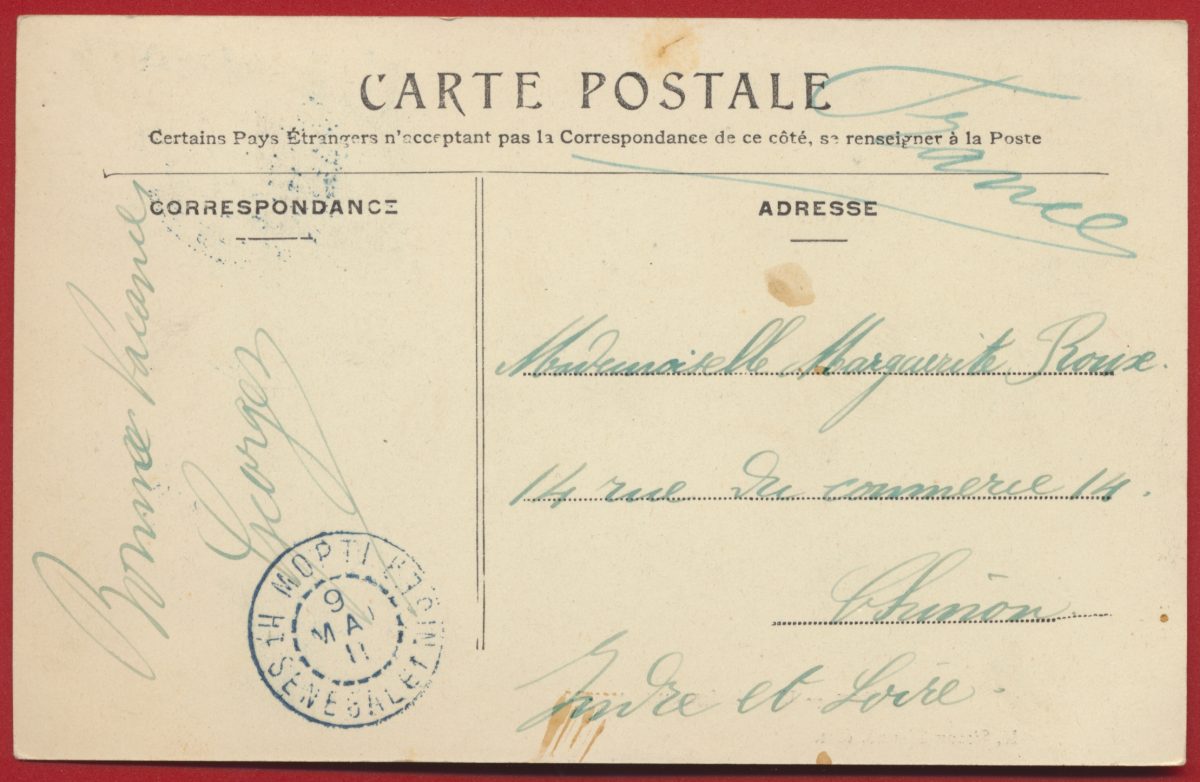 CARTE POSTALE
France
Certains Pays Étrangers n'acceptant pas la Correspondance de ce côté, se renseigner à la Poste
CORRESPONDANCE
Bonnes vacances
Georges
ADRESSE
Mademoiselle Marguerite Roux.
14 rue du commerce 14.
Chinon
Indre et Loire.
MOPTI
9
MAI
11
HT SENEGAL ET NIGER